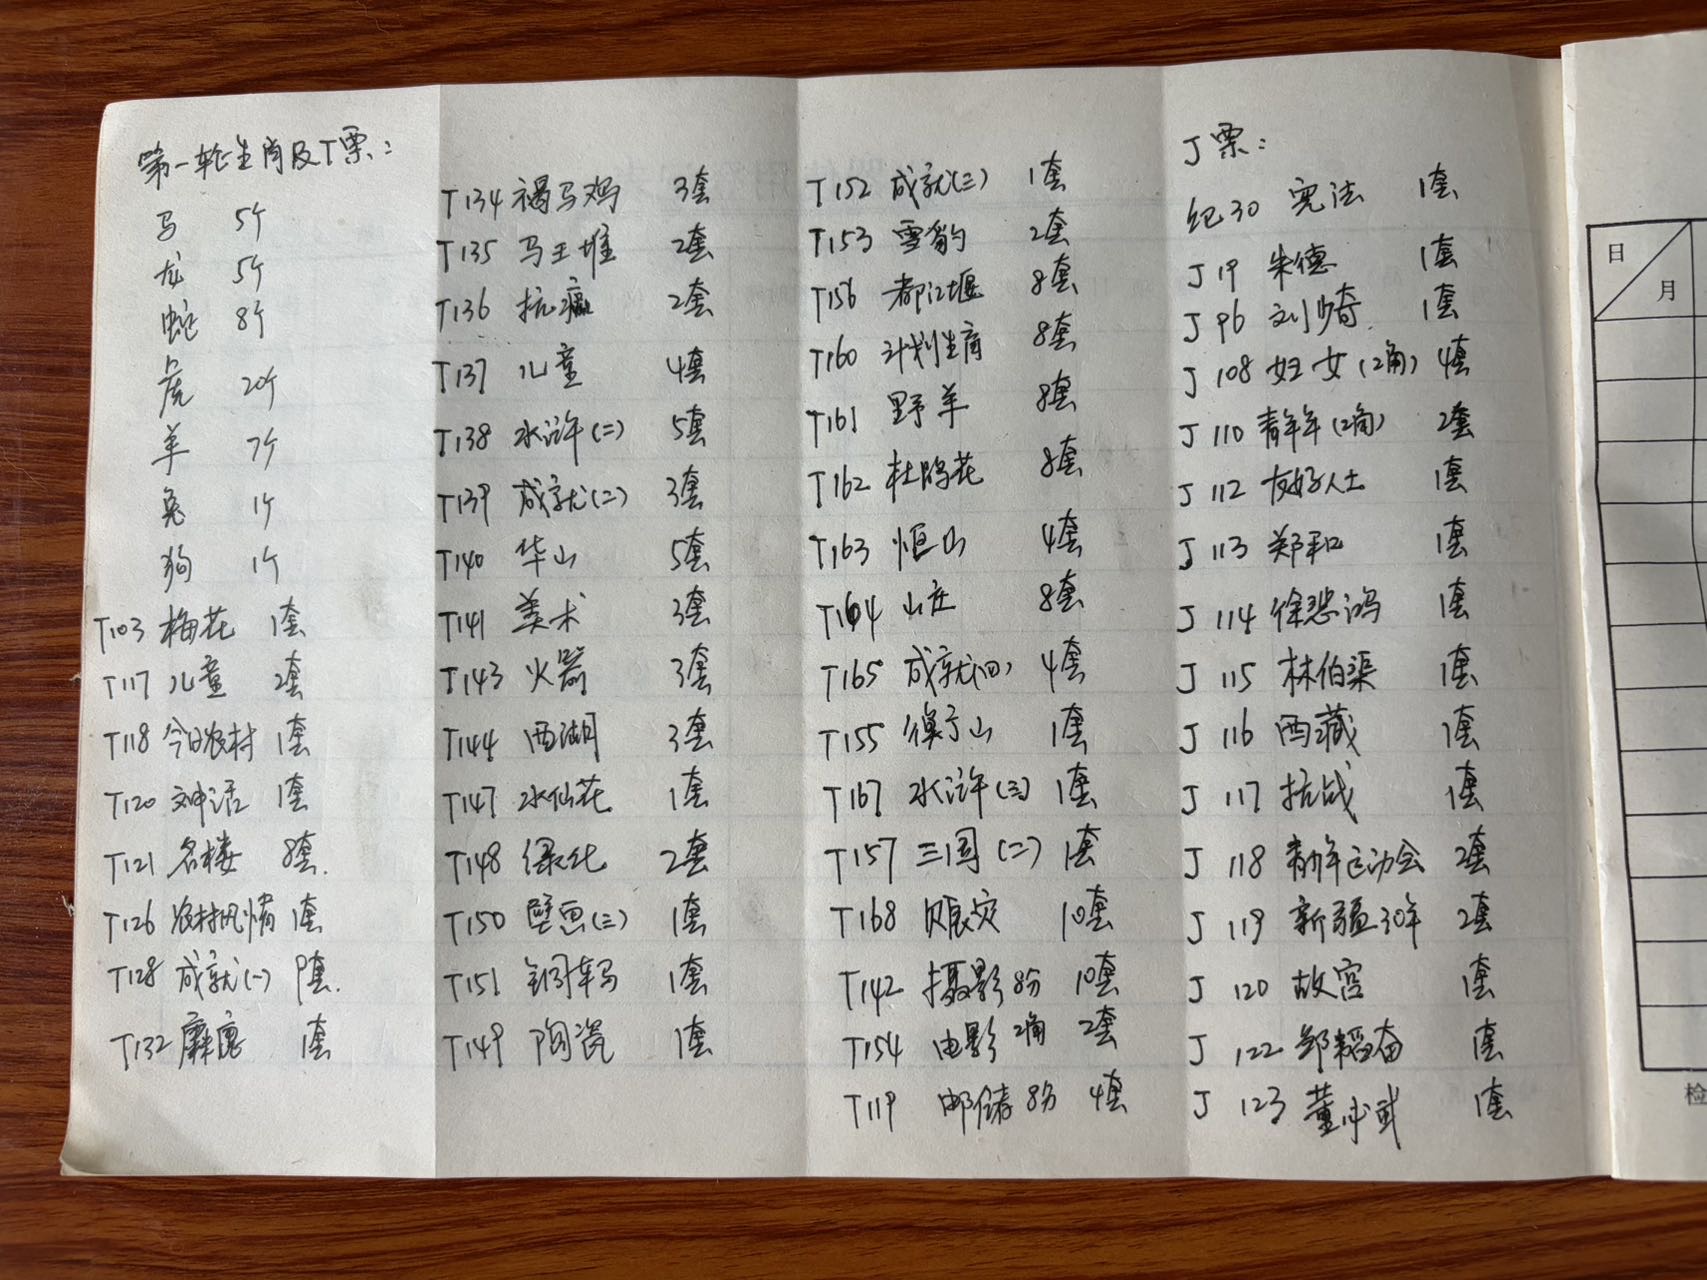 第一轮生肖及T票：
马 5个
龙 5个
蛇 8个
虎 20个
羊 7个
兔 1个
狗 1个
T103 梅花 1套
T117 儿童 2套
T118 今日农村 1套
T120 神话 1套
T121 名楼 8套.
T126 农村风情 1套
T128 成就(一) 9套.
T132 麋鹿 1套
T134 褐马鸡 3套
T135 马王堆 2套
T136 抗癌 2套
T137 儿童 4套
T138 水浒(二) 5套
T139 成就(二) 3套
T140 华山 5套
T141 美术 3套
T143 火器 3套
T144 西湖 3套
T147 水仙花 1套
T148 绿化 2套
T150 壁画(三) 1套
T151 铜车马 1套
T149 陶瓷 1套
T152 成就(三) 1套
T153 雪豹 2套
T156 都江堰 8套
T160 计划生育 8套
T161 野羊 8套
T162 杜鹃花 8套
T163 恒山 4套
T164 山庄 8套
T165 成就(四) 4套
T155 衡山 1套
T167 水浒(三) 1套
T157 三国(二) 1套
T168 赈灾 10套
T142 摄影 8分 10套
T154 电影 2角 2套
T119 邮储 8分 4套
J票：
纪30 宪法 1套
J 19 朱德 1套
J 96 刘少奇 1套
J 108 妇女(2角) 4套
J 110 青年年(2角) 2套
J 112 友好人士 1套
J 113 郑和 1套
J 114 徐悲鸿 1套
J 115 林伯渠 1套
J 116 西藏 1套
J 117 抗战 1套
J 118 青少年运动会 2套
J 119 新疆30年 2套
J 120 故宫 1套
J 122 邹韬奋 1套
J 123 董必武 1套
日
月
检